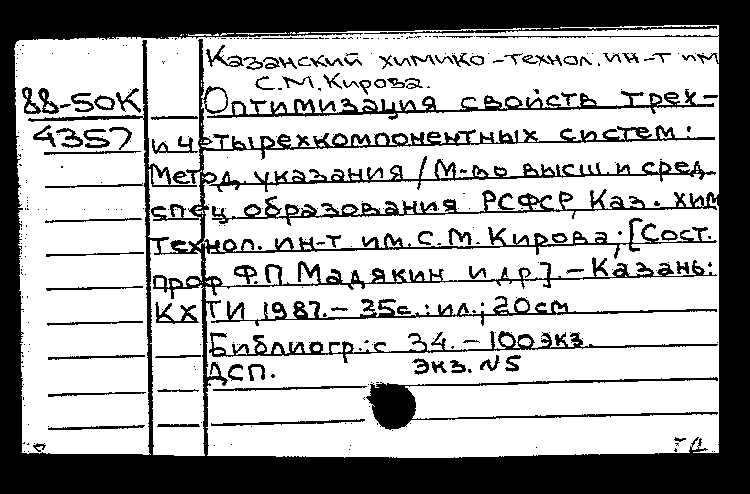 Казанский химико-технол. ин-т им
С.М.Кирова.
88-50К
4357
Оптимизация свойств трех-
и четырехкомпонентных систем:
Метод. указания / М-во высш. и сред.
спец. образования РСФСР, Каз. хим
технол. ин-т им. С.М. Кирова; [Сост.
проф Ф.П. Мадякин и др]. – Казань:
КХТИ, 1987. – 35с.: ил.; 20см
Библиогр.: с 34. – 100 экз.
ДСП. Экз. №5
ТД